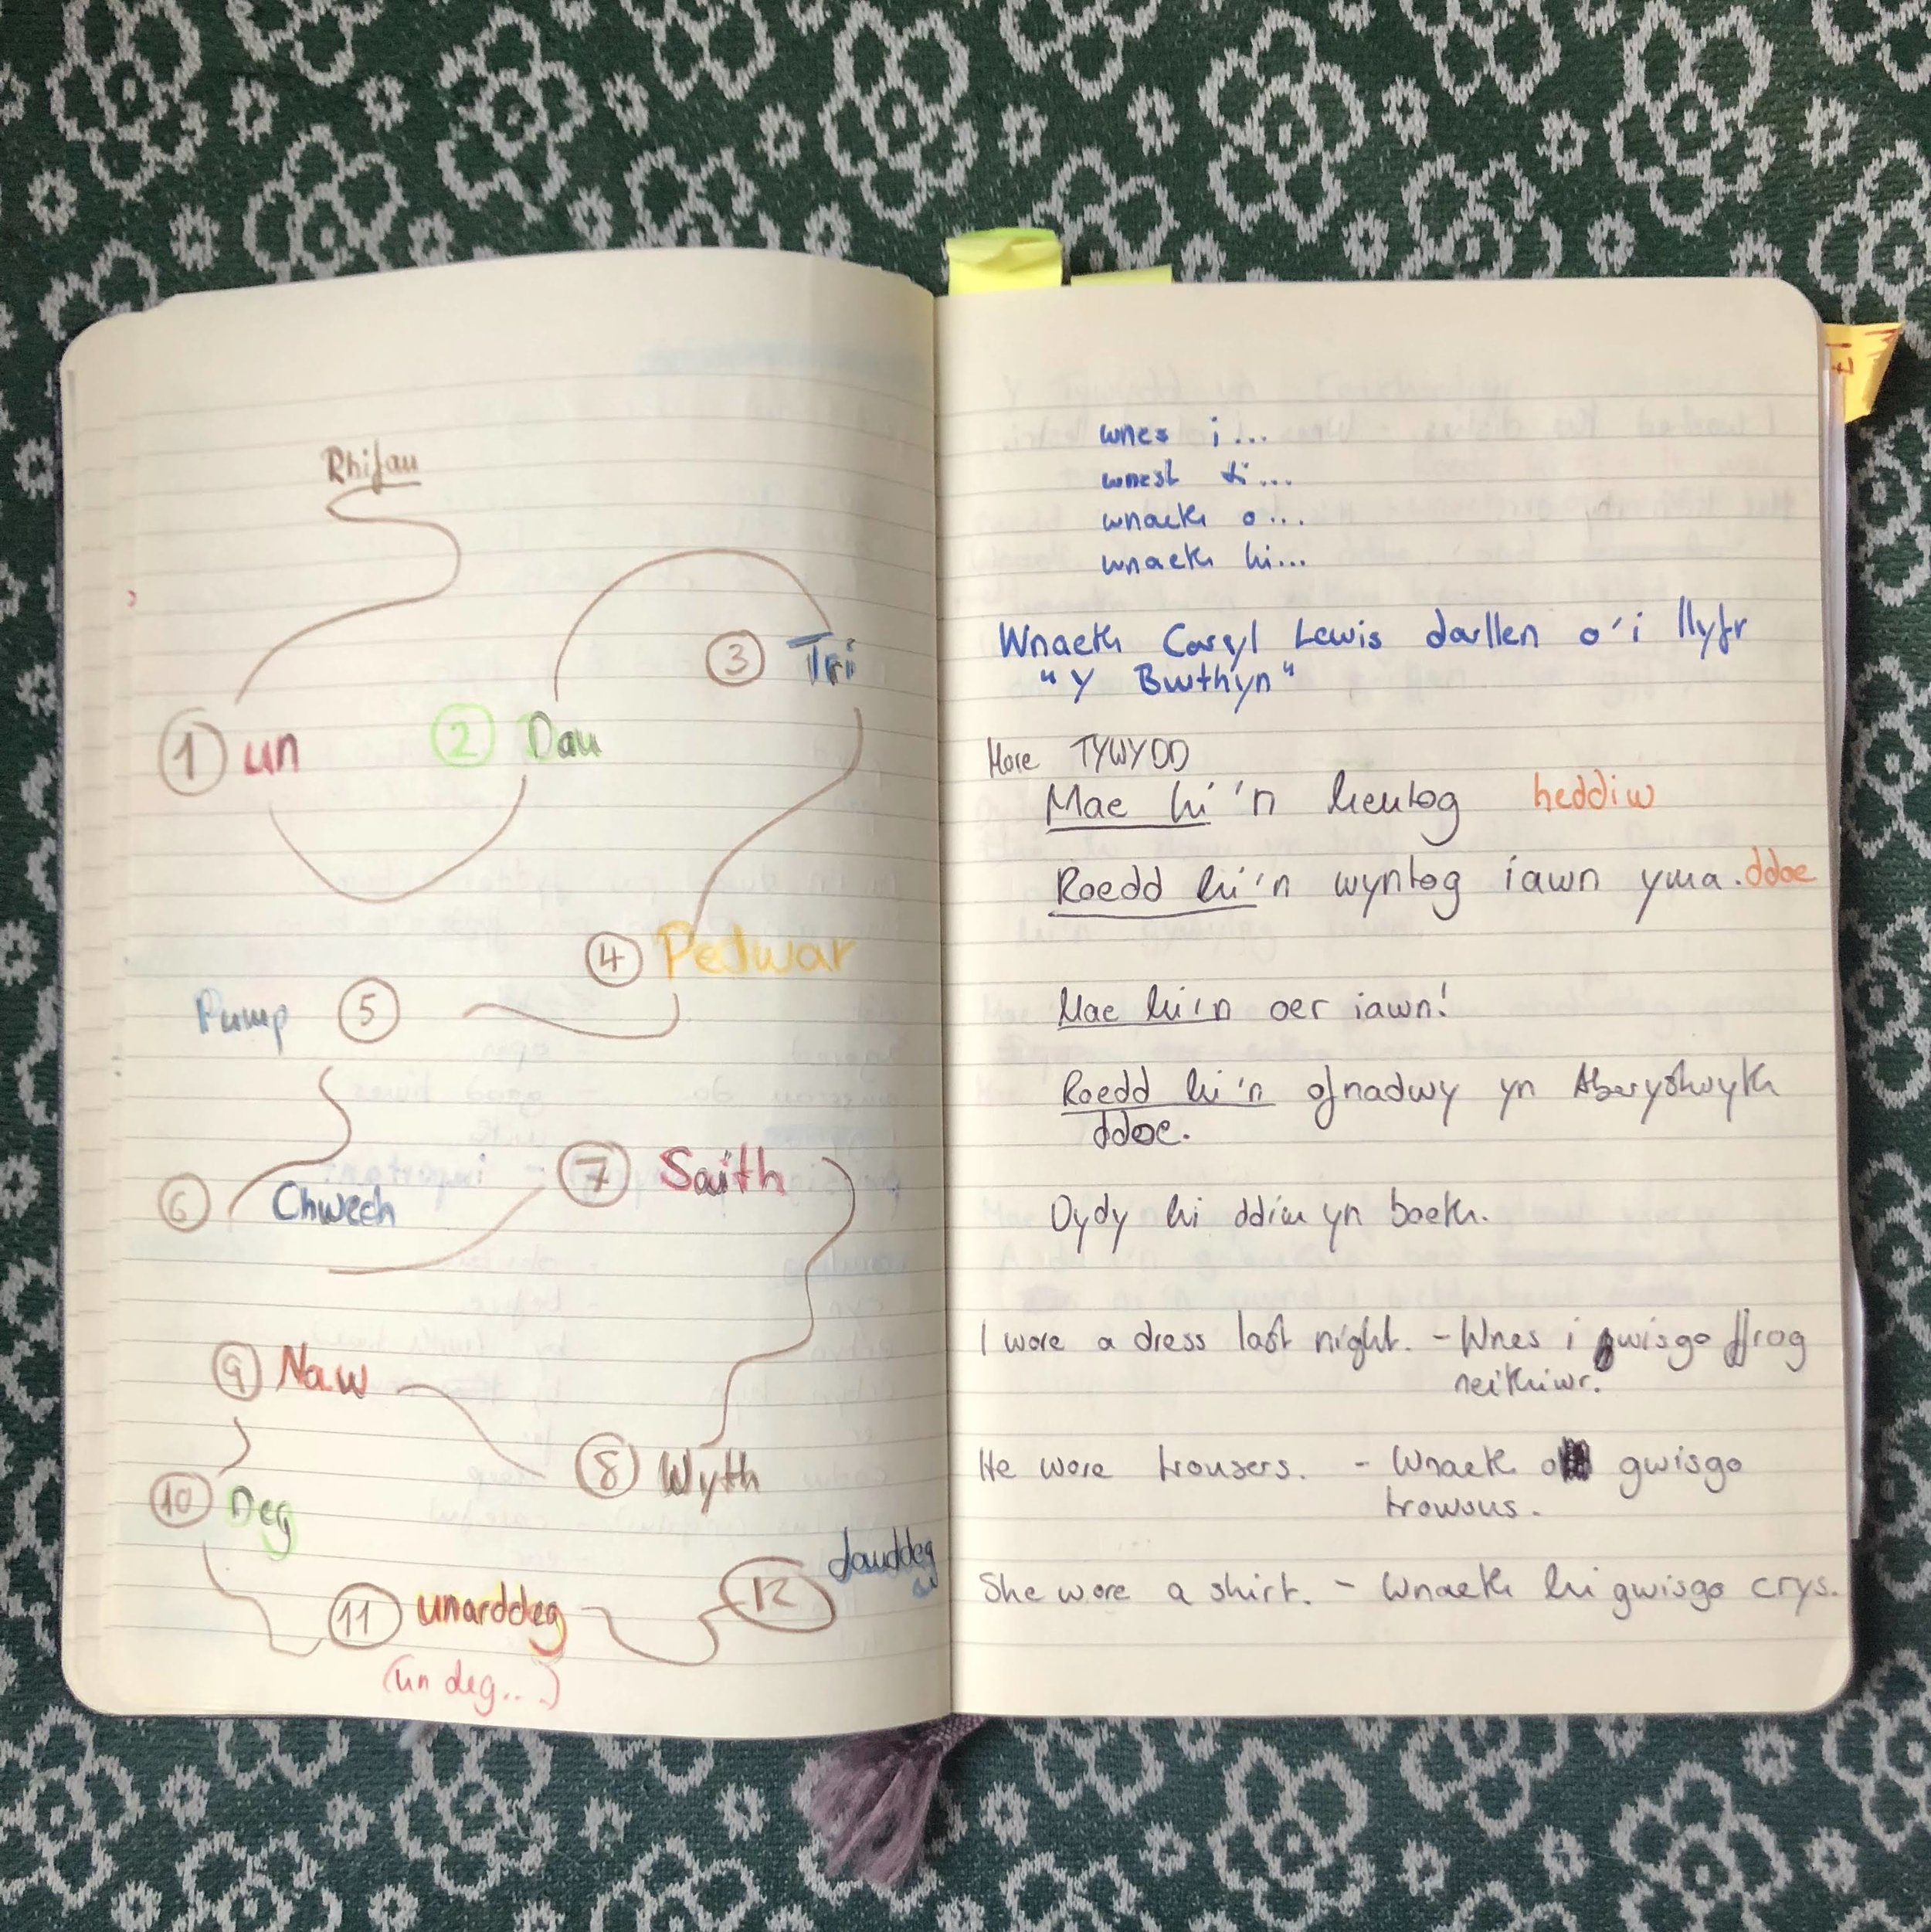 Rhifau
1 un
2 Dau
3 Tri
4 Pedwar
Pump 5
6 Chwech
7 Saith
8 Wyth
9 Naw
10 Deg
11 unarddeg
(un deg...)
12 dauddeg
wnes i...
wnest ti...
wnaeth o...
wnaeth hi...
Wnaeth Caryl Lewis darllen o'i llyfr
"Y Bwthyn"
More TYWYDD
Mae hi'n heulog heddiw
Roedd hi'n wyntog iawn yma. ddoe
Mae hi'n oer iawn!
Roedd hi'n ofnadwy yn Aberystwyth
ddoe.
Dydy hi ddim yn boeth.
I wore a dress last night. - Wnes i gwisgo ffrog
neithiwr.
He wore trousers. - Wnaeth o gwisgo
trowsus.
She wore a shirt. - Wnaeth hi gwisgo crys.